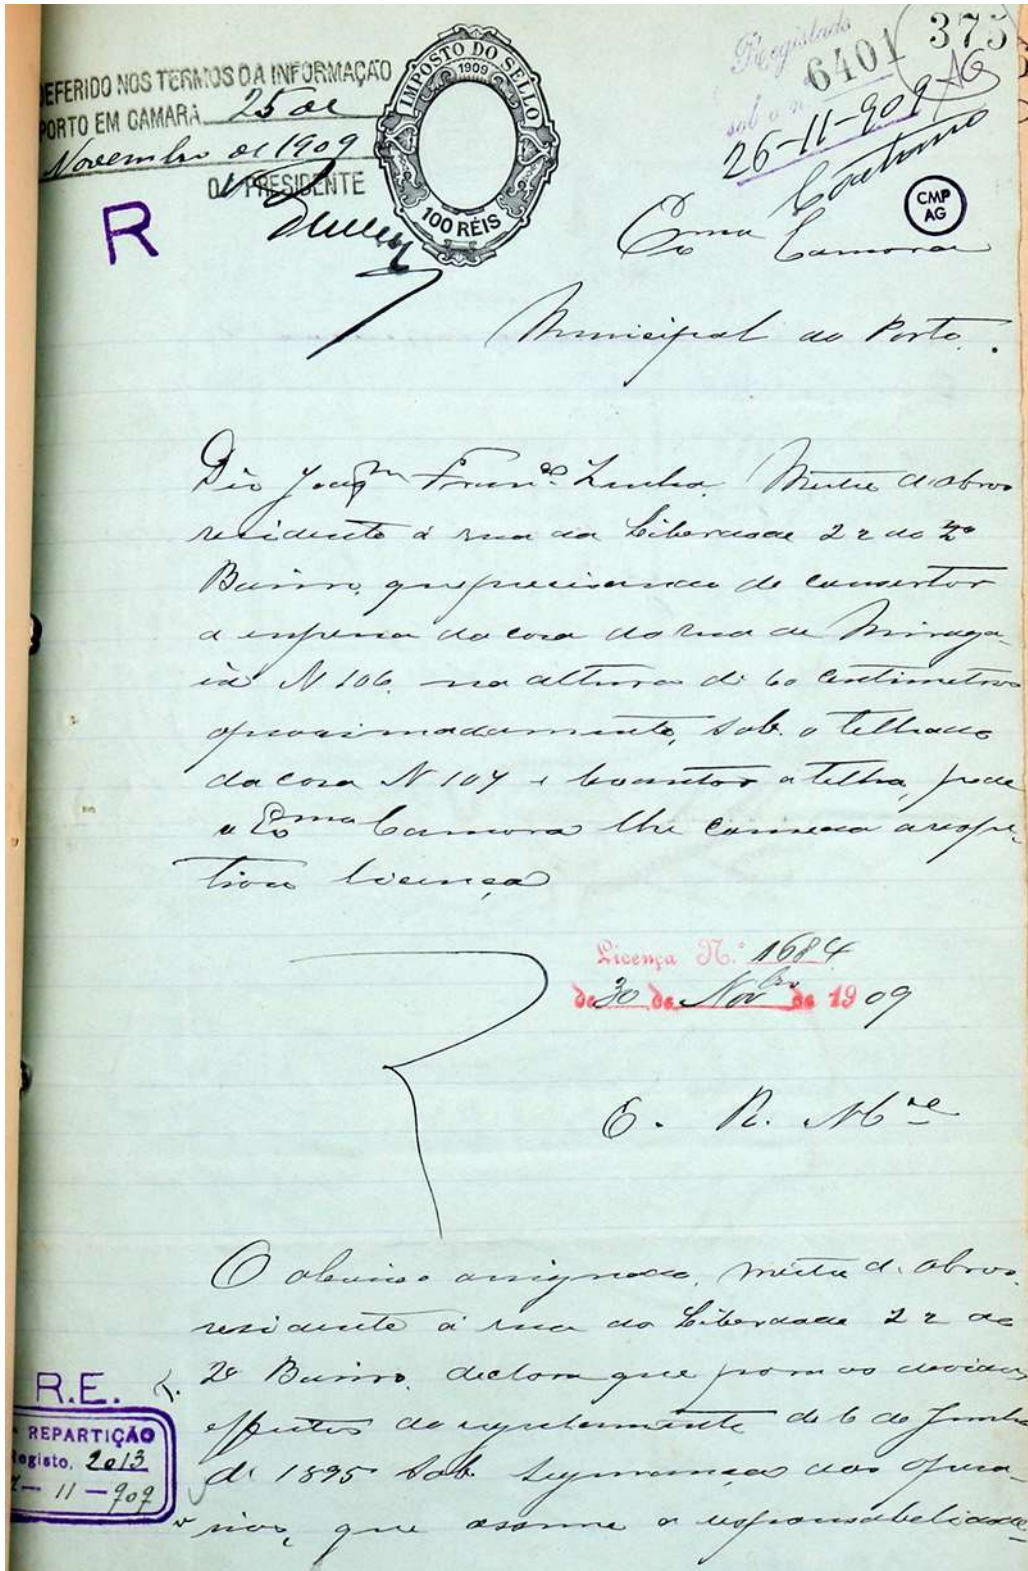 DEFERIDO NOS TERMOS DA INFORMAÇÃO
PORTO EM CAMARA 25 de
Novembro de 1909
O PRESIDENTE
R
IMPOSTO DO SELLO
1909
100 RÉIS
Registado
sob o nº 6401
375
AG
26-11-909
Coutinho
CMP
AG
Exma Camara
Municipal do Porto.
Diz Joaqm Franco Mestre d'obras
residente á rua da Liberdade 22 do 2º
Bairro, que precisando de concertar
a empena da casa da rua de Miraga-
ia N 106, na altura de 60 centimetros
aproximadamente, sob o telhado
da casa N 107 e levantar a telha, pede
a Exma Camara lhe conceda a respe-
tiva licença
Licença N.º 1684
de 30 de Novbro de 1909
E. R. Mce
O abaixo assignado, mestre d'obras
residente á rua da Liberdade 22 do
2º Bairro, declara que para os devidos
effeitos do regulamento de 6 de Junho
de 1895 sob segurança dos opera-
rios, que assume a responsabelidade
R.E.
REPARTIÇÃO
Registo, 2013
11-909